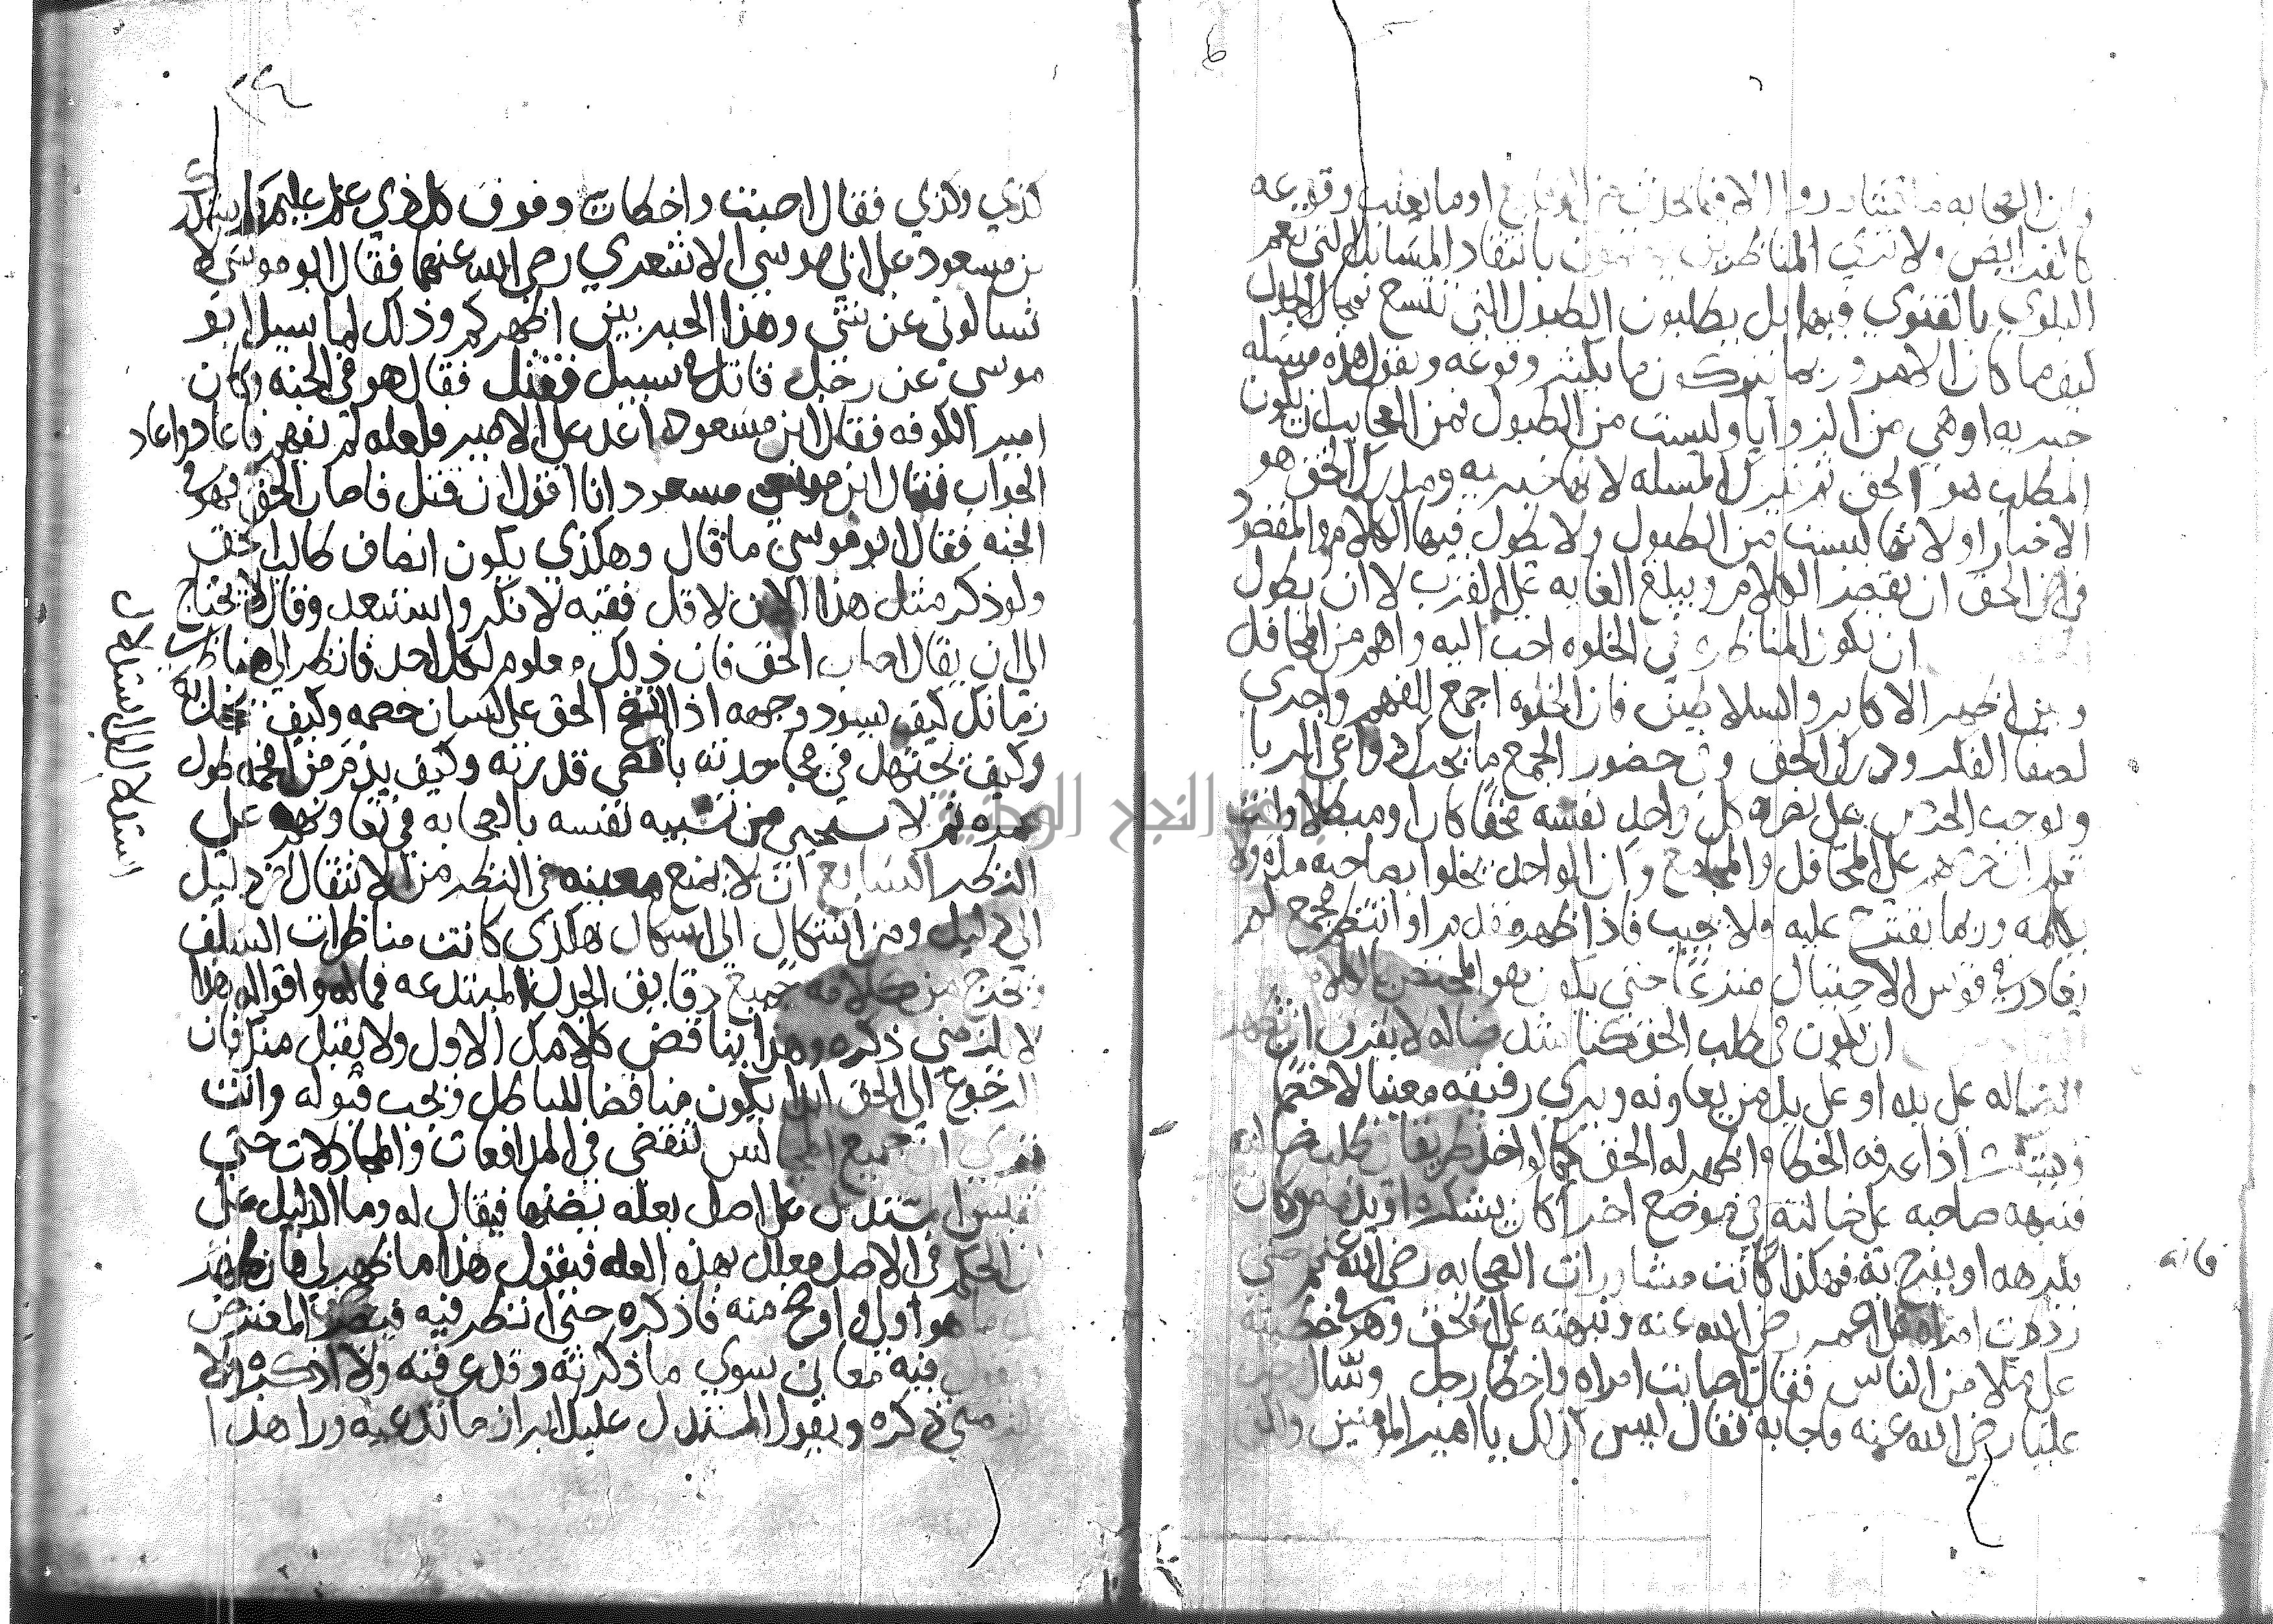 فان الصحابه ما تشاوروا الا فيما تجدد من الوقايع او ما يغلب وقوعه
كالفرايض ولا نري المناظرين يهتمون بانتقاد المسايل التي تعم
البلوي بالفتوي فيها بل يطلبون الطبول التي تتسع مجال الجدل
كيف ما كان الامر وربما يتركون ما يكثر وقوعه ويقول هذه مسله
خبريه او هي من الزوايا وليست من الطبول فمن العجايب ان يكون
المطلب هو الحق ثم تترك المسله لانها خبريه ومدرك الحق هو
الاخبار او لانها ليست من الطبول ولا يطول فيها الكلام والمقصود
في الحق ان يقصر الكلام ويبلغ الغايه علي القرب لا ان يطول
ان يكون المناظره في الخلوه احب اليه واهم من المحافل
وبين اظهر الاكابر والسلاطين فان الخلوه اجمع للفهم واحري
لصفا الفكر ودرك الحق وفي حضور الجمع ما يحرك دواعي الريا
ويوجب الحرص علي نصره كل واحد نفسه محقا كان او مبطلا وانت
تعلم ان حرصهم علي المحافل والمجامع وان الواحد يخلوا بصاحبه مده ولا
يكلمه وربما يقترح عليه ولا يجيب فاذا ظهر مقدم او انتظم مجمع لم
يغادر في قوس الاحتيال منزعا حتي يكون هو المختص بالكلام
ان يكون في طلب الحق كناشد ضاله لا يفرق ان تظهر
الضاله علي يده او علي يد من يعاونه ويري رفيقه معينا لا خصما
ويشكره اذا عرفه الخطا واظهر له الحق كما لو اخذ طريقا في طلب ضالته
فنبهه صاحبه علي ضالته في موضع اخر اكان يشكره او يذمه وكان
يكرهه او يفرح به فهكذا كانت مشاورات الصحابه رضي الله عنهم حتي
ردت امراه علي عمر رضي الله عنه ونبهته علي الحق وهو في خطبته
علي ملا من الناس فقال اصابت امراه واخطا رجل وسال رجل
عليا رضي الله عنه فاجابه فقال ليس كذلك يا امير المومنين ولكن
فانه
٢٤
كذي وكذي فقال اصبت واخطات وفوق كل ذي علم عليم واستدرك
بن مسعود علي ابي موسي الاشعري رضي الله عنهما فقال ابو موسي لا
تسالوني عن شي وهذا الحبر بين اظهركم وذلك لما سيل ابو
موسي عن رجل قاتل في سبيل فقتل فقال هو في الجنه وكان
امير الكوفه فقال ابن مسعود اعد علي الامير فلعله لم يفهم فاعادوا عاد
الجواب فقال ابن مسعود انا اقول ان قتل فاصاب الحق فهو في
الجنه فقال ابو موسي ما قال وهكذي يكون انصاف طالب الحق
ولو ذكر مثل هذا الان لاقل فقيه لانكر واستبعد وقال لا يحتاج
الي ان يقال اصاب الحق فان ذلك معلوم لكل احد فانظر الي مناظري
زمانك كيف يسود وجهه اذا اتضح الحق علي لسان خصمه وكيف يخجل به
وكيف يجتهد في مجاحدته باقصي قدرته وكيف يذم من افحمه طول
عمره ثم لا يستحيي من تشبيه نفسه بالصحابه في تعاونهم علي
النظر السابع ان لا يمنع معينه في النظر من الانتقال من دليل
الي دليل ومن اشكال الي اشكال هكذي كانت مناظرات السلف
ويخرج من كلامه جميع دقايق الجدل المبتدعه فيما له واقواله هذا
لا يلزمني ذكره وهذا يناقض كلامك الاول ولا يقبل منك فان
الرجوع الي الحق ابدا يكون مناقضا للباطل ويجب قبوله وانت
تري ان جميع المجالس تنقضي في المدافعات والمجادلات حتي
يقيس المستدل علي اصل بعله يظنها فيقال له وما الدليل علي
ان الحكم في الاصل معلل بهذه العله فيقول هذا ما ظهر لي فان ظهر
لك ما هو اولي واوضح منه فاذكره حتي انظر فيه فيصر المعترض
ويقول فيه معاني سوي ما ذكرته وقد عرفته ولا اذكره اذ لا
يلزمني ذكره ويقول المستدل عليك ابراز ما تدعيه ورا هذا